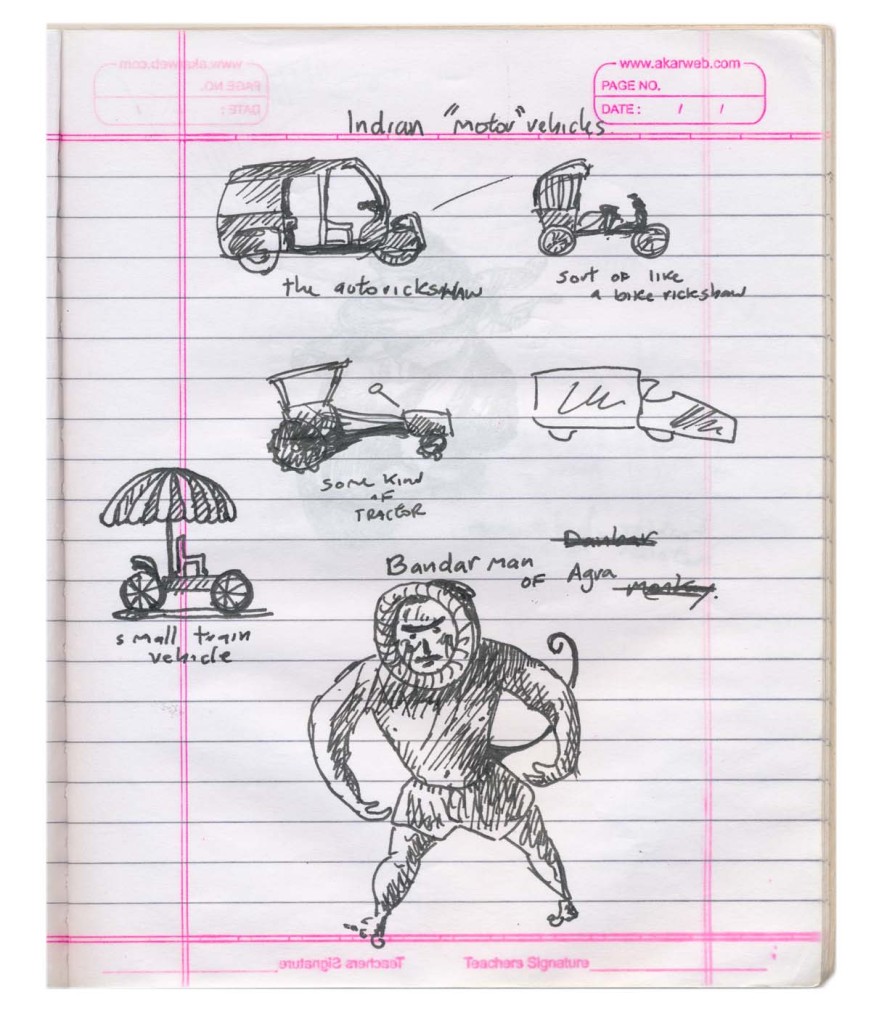 www.akarweb.com
PAGE NO.
DATE : / /
Indian "motor" vehicles
the autorickshaw
sort of like
a bike rickshaw
some kind
of
TRACTOR
small train
vehicle
Danbar
Bandar man
OF Agra
Monky.
Teachers Signature